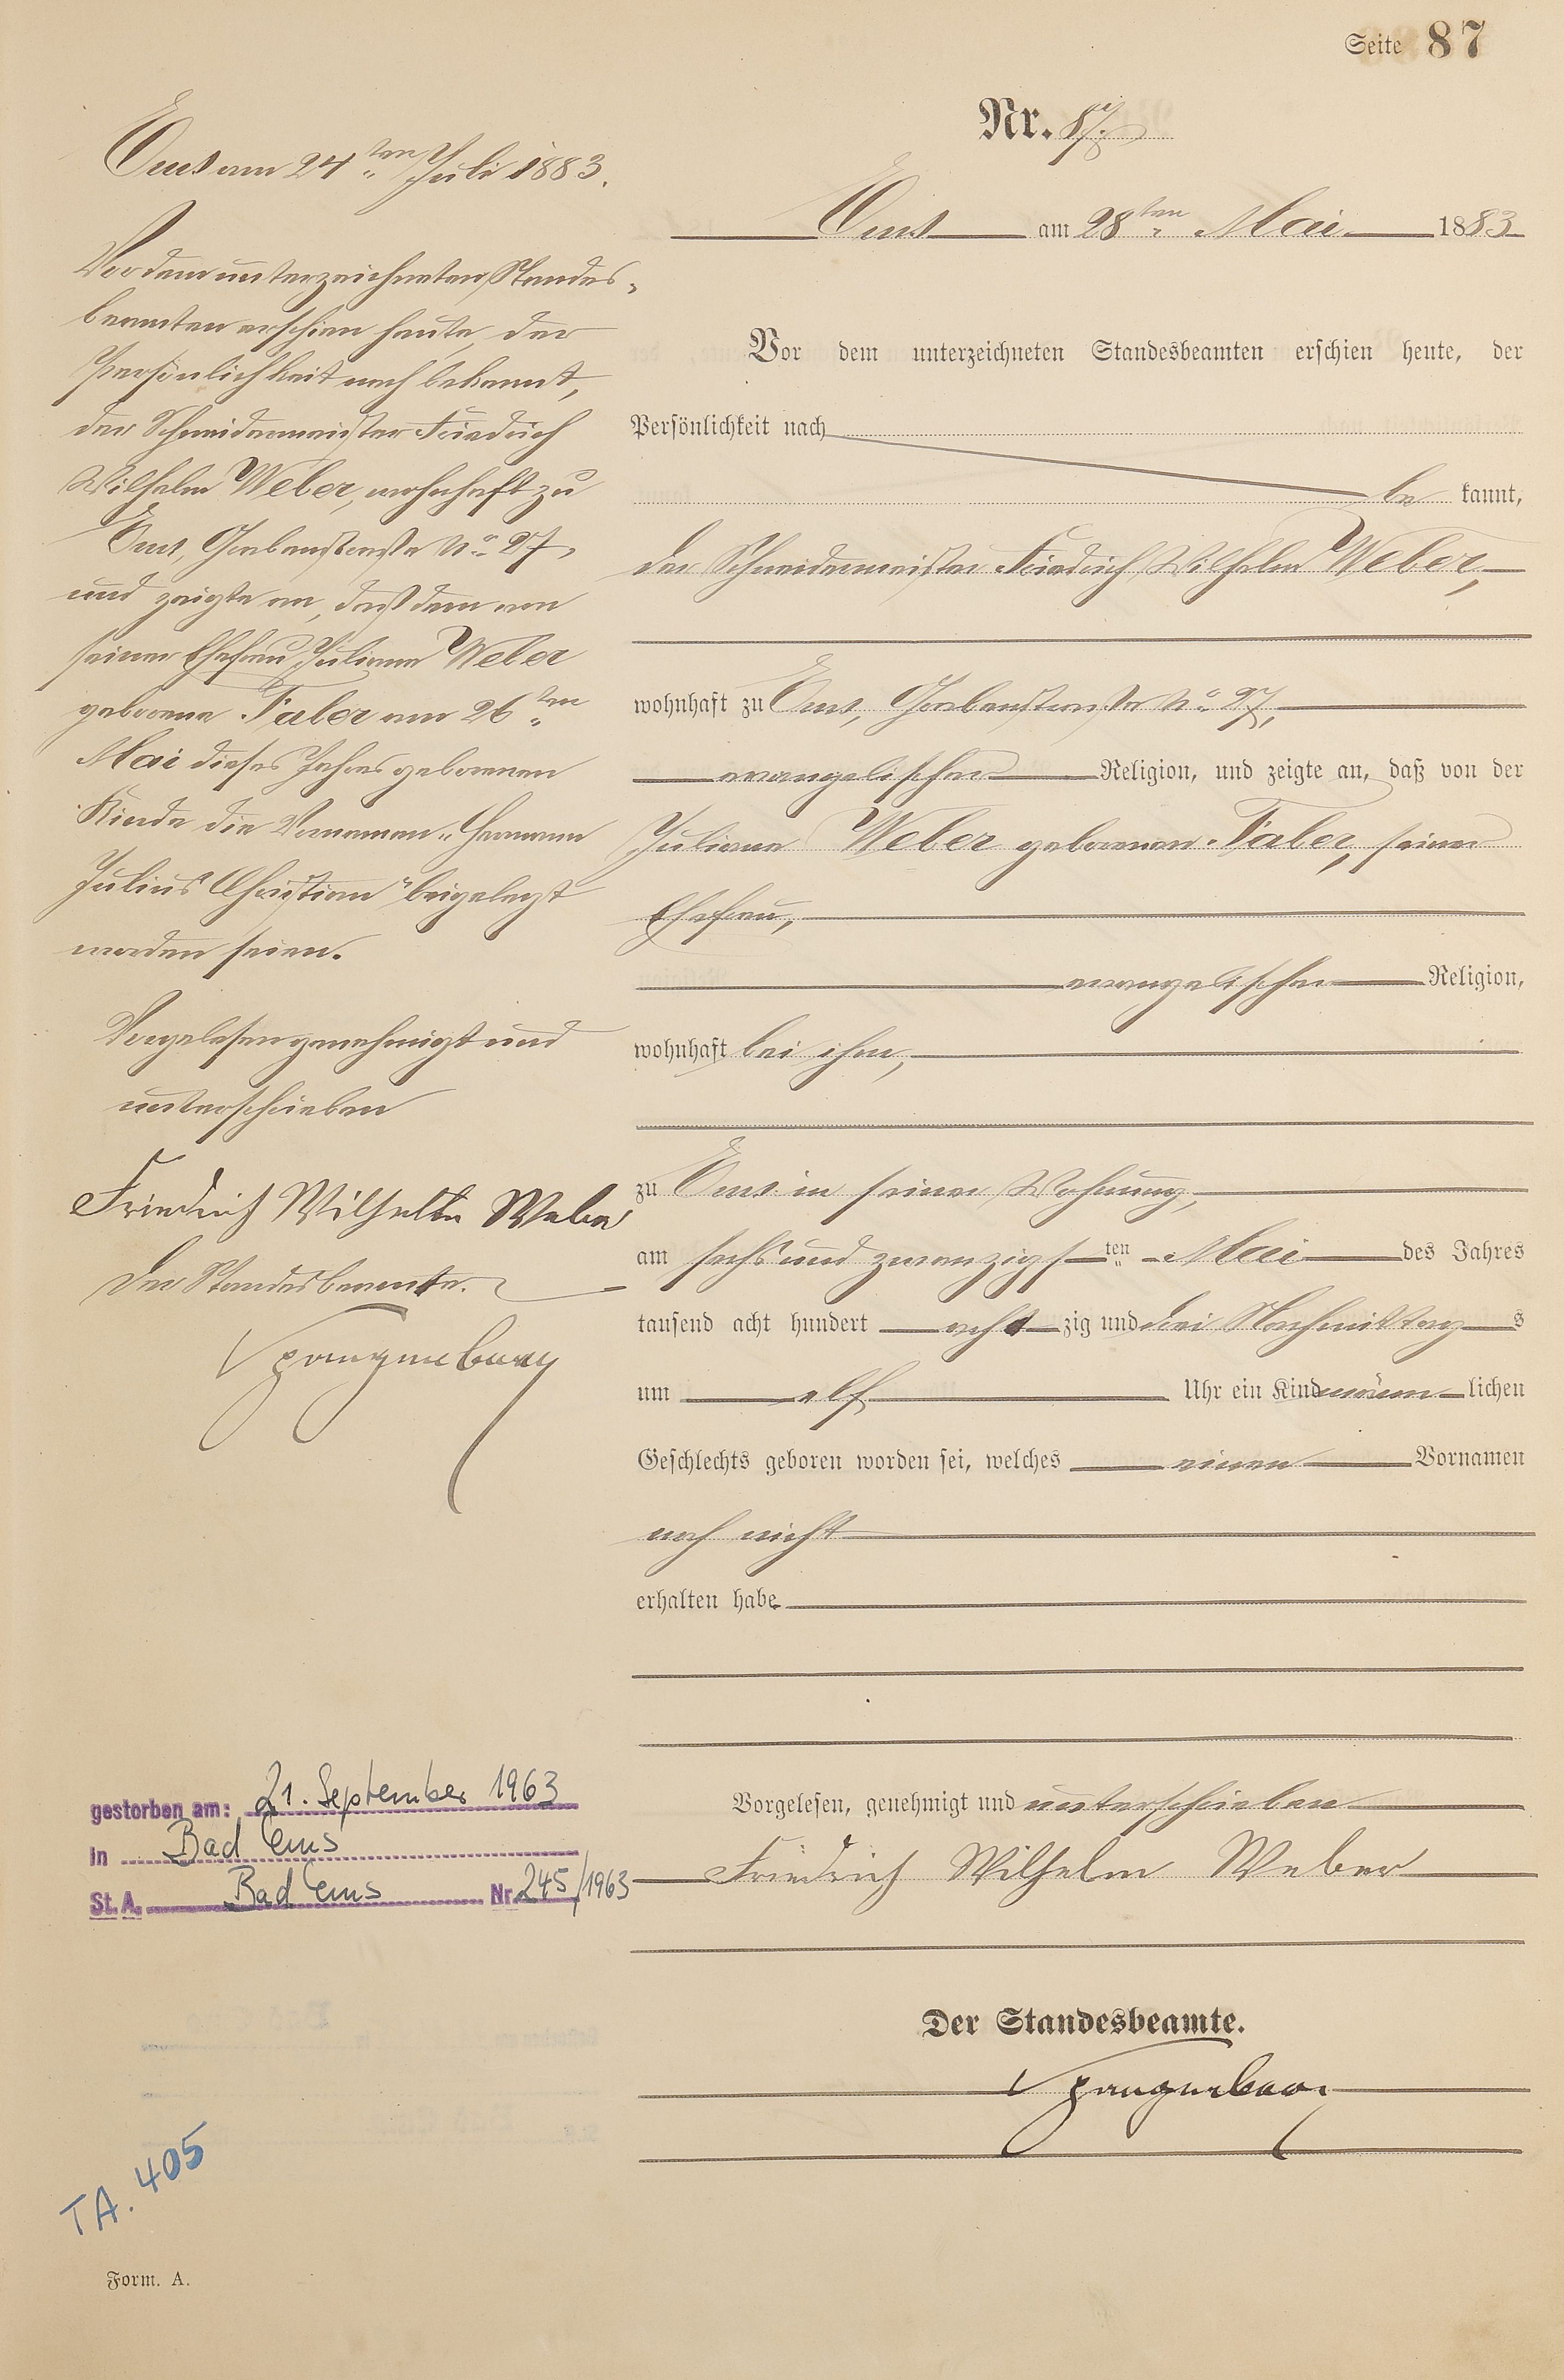 Seite 87
Nr. 87.
Ems am 28ten Mai 1883
Vor dem unterzeichneten Standesbeamten erschien heute, der
Persönlichkeit nach
bekannt,
der Schneidermeister Friedrich Wilhelm Weber,
wohnhaft zu Ems, Grabenstraße No 27,
evangelischer Religion, und zeigte an, daß von der
Juliane Weber geborenen Faber, seiner
Ehefrau,
evangelischer Religion,
wohnhaft bei ihm,
zu Ems in seiner Wohnung,
am sechs und zwanzigsten Mai des Jahres
tausend acht hundert achtzig und drei Nachmittags
um elf Uhr ein Kind männlichen
Geschlechts geboren worden sei, welches einen Vornamen
noch nicht
erhalten habe
Vorgelesen, genehmigt und unterschrieben
Friedrich Wilhelm Weber
Der Standesbeamte.
Spangenberg
Ems am 24ten Juli 1883.
Vor dem unterzeichneten Standes-
beamten erschien heute, der
Persönlichkeit nach bekannt,
der Schneidermeister Friedrich
Wilhelm Weber, wohnhaft zu
Ems, Grabenstraße No 27,
und zeigte an, daß dem von
seiner Ehefrau Juliane Weber
geborene Faber am 26ten
Mai dieses Jahres geborenen
Kinde die Vornamen „Hermann
Julius Christian" beigelegt
worden seien.
Vorgelesen genehmigt und
unterschrieben
Friedrich Wilhelm Weber
Der Standesbeamte.
Spangenberg
gestorben am: 21. September 1963
in Bad Ems
St. A. Bad Ems Nr. 245/1963
TA. 405
Form. A.